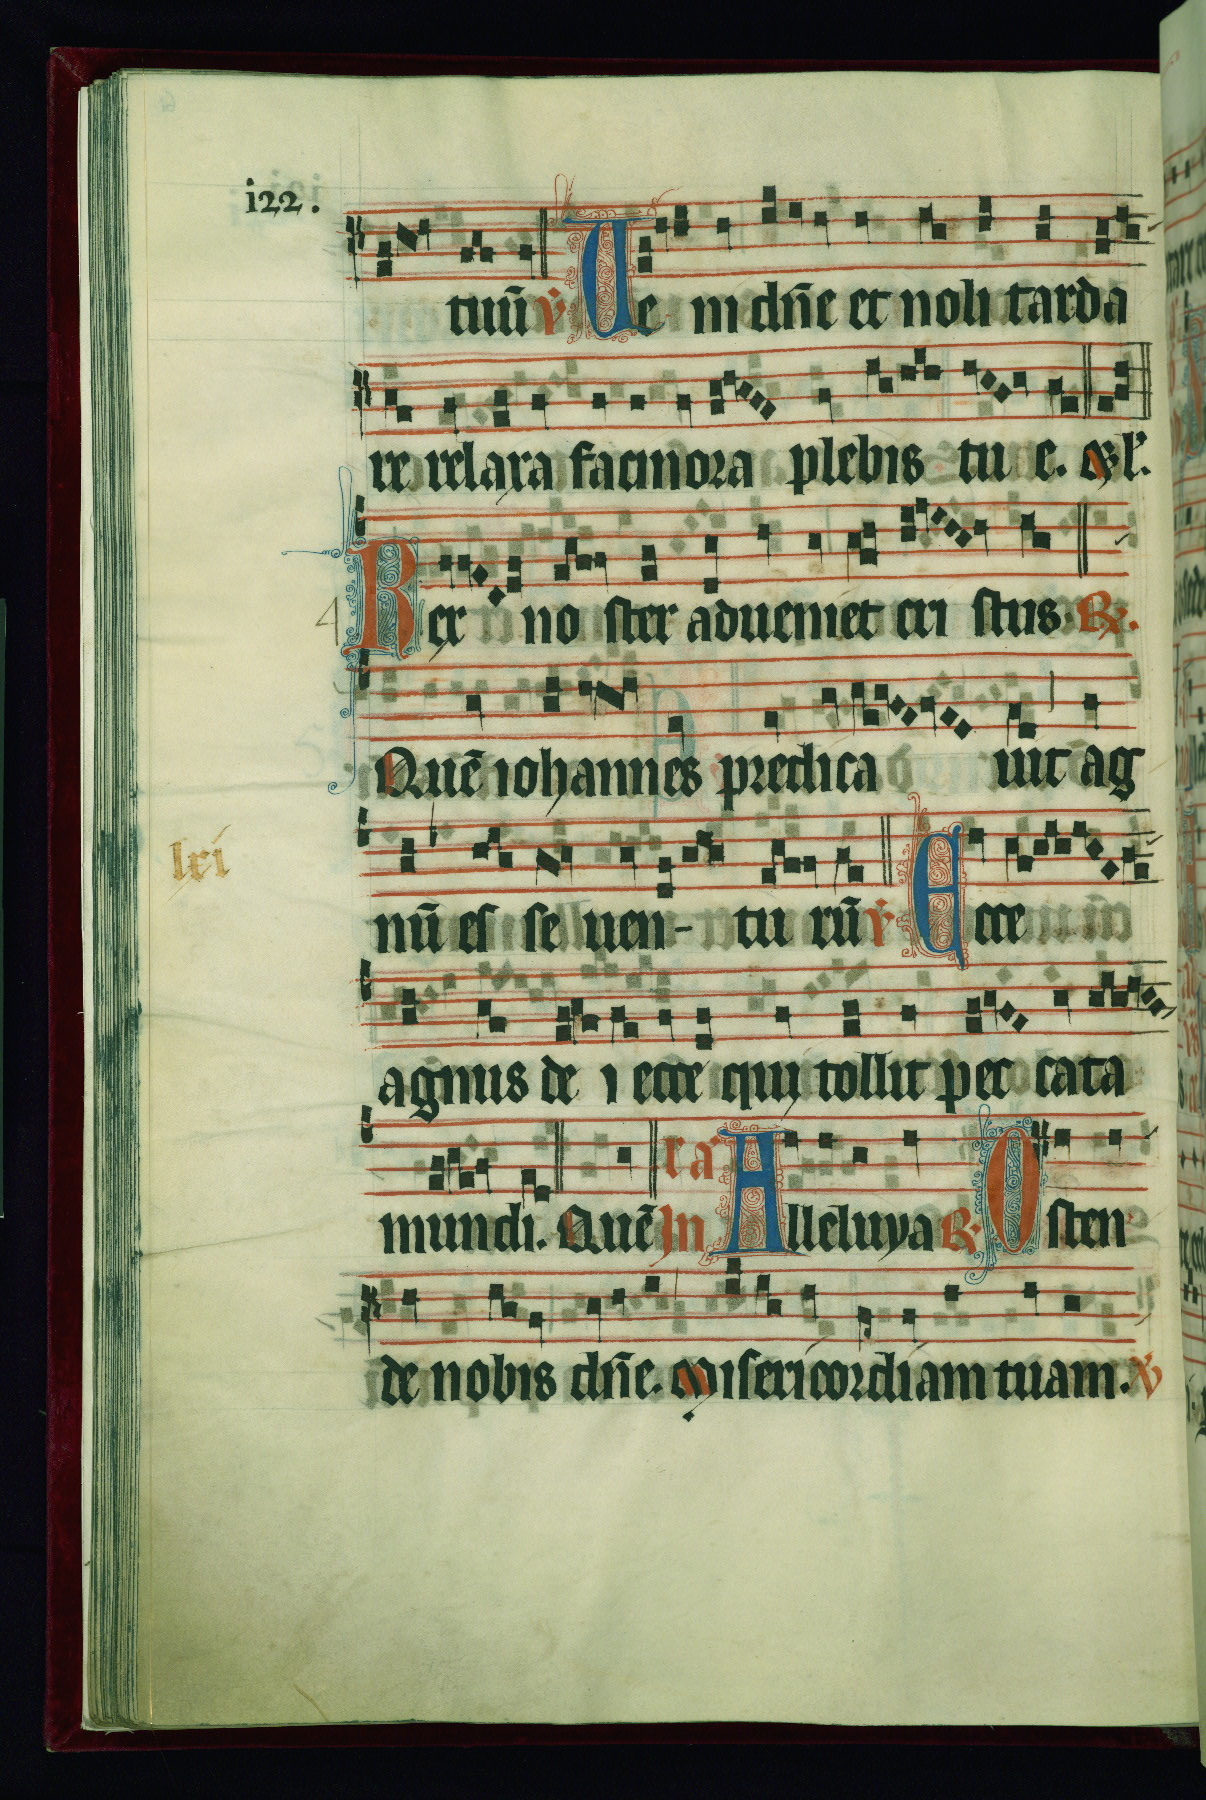 i22.
tuū v̄ Ue ni dn̄e et noli tarda
re relaxa facinora plebis tu e. Ql'.
4 Rex no ster adueniet cri stus. R.
Quē iohannes predica uit ag
lxi
nū es se uen- tu rū v̄ Ecce
agnus de i ecce qui tollit pec cata
mundi. Quē In Alleluya R. Osten
de nobis dn̄e. Misericordiam tuam. V